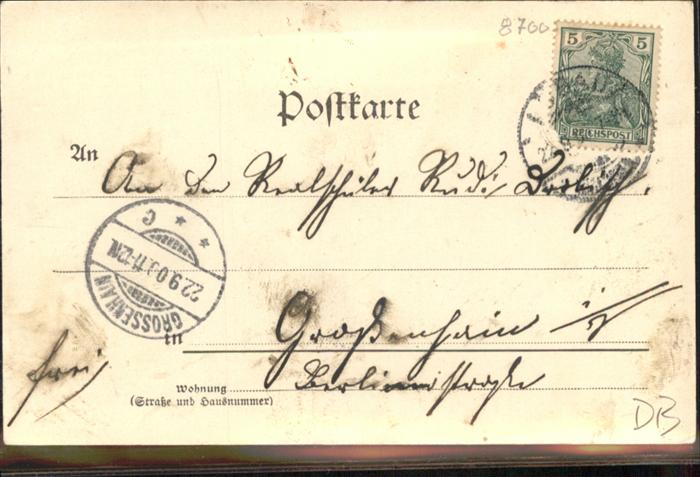 8700
5 5
REICHSPOST
Postkarte
An
An den Realschüler Rudi
GROSSENHAIN
22.9.00.11-12N.
* * C
in Großenhain i/S
frei
Wohnung
(Straße und Hausnummer)
Berlinerstraße
DB